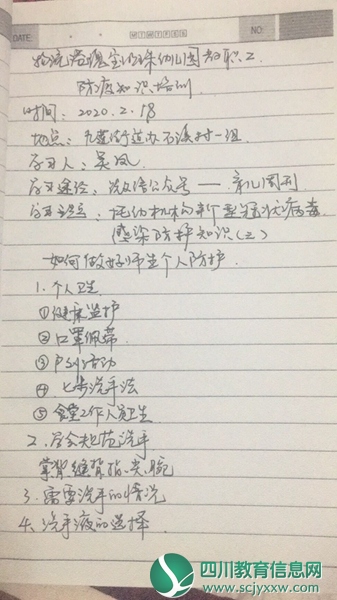 DATE
NO:
防疫知识培训
时间：2020.2.18
地点：九莲街道办石溪村一组
学习人：吴凤
学习途径：微信公众号——育儿周刊
学习主题：托幼机构新型冠状病毒
感染防护知识(三)
如何做好师生个人防护
1.个人卫生
①健康监护
②口罩佩带
③户外活动
④七步洗手法
⑤食堂工作人员卫生
2.学会规范洗手
掌背缝背指尖腕
3.需要洗手的情况
4.洗手液的选择
四川教育信息网
www.scjyxxw.com